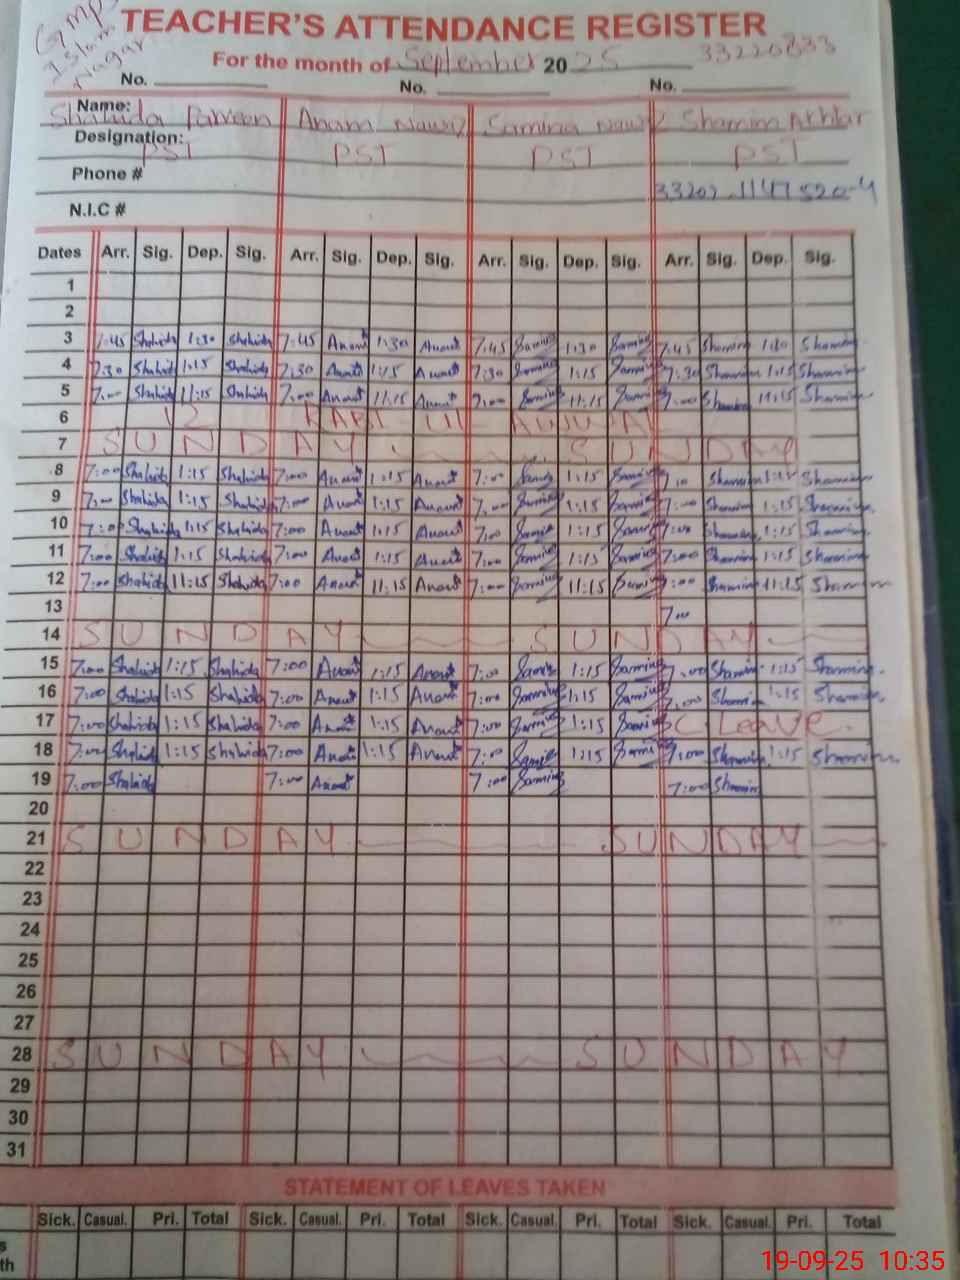 GMPS TEACHER'S ATTENDANCE REGISTER
Islam Nagar
For the month of September 2025 33220833
No. No. No.
Name: Shahida Parveen Anam Nawaz Samina Nawaz Shamim Akhtar
Designation: PST PST PST PST
Phone #
33202-1147520-4
N.I.C #
Dates Arr. Sig. Dep. Sig. Arr. Sig. Dep. Sig. Arr. Sig. Dep. Sig. Arr. Sig. Dep. Sig.
1
2
3 7:45 Shahida 1:30 Shahida 7:45 Anam 1:30 Anam 7:45 Samina 1:30 Samina 7:45 Shamim 1:30 Shamim
4 7:30 Shahida 1:15 Shahida 7:30 Anam 1:15 Anam 7:30 Samina 1:15 Samina 7:30 Shamim 1:15 Shamim
5 7:00 Shahida 11:15 Shahida 7:00 Anam 11:15 Anam 7:00 Samina 11:15 Samina 7:00 Shamim 11:15 Shamim
6 12 RABI-UL-AWWAL
7 SUNDAY SUNDAY
8 7:00 Shahida 1:15 Shahida 7:00 Anam 1:15 Anam 7:00 Samina 1:15 Samina 7:00 Shamim 1:15 Shamim
9 7:00 Shahida 1:15 Shahida 7:00 Anam 1:15 Anam 7:00 Samina 1:15 Samina 7:00 Shamim 1:15 Shamim
10 7:00 Shahida 1:15 Shahida 7:00 Anam 1:15 Anam 7:00 Samina 1:15 Samina 7:00 Shamim 1:15 Shamim
11 7:00 Shahida 1:15 Shahida 7:00 Anam 1:15 Anam 7:00 Samina 1:15 Samina 7:00 Shamim 1:15 Shamim
12 7:00 Shahida 11:15 Shahida 7:00 Anam 11:15 Anam 7:00 Samina 11:15 Samina 7:00 Shamim 11:15 Shamim
13 7:00
14 SUNDAY SUNDAY
15 7:00 Shahida 1:15 Shahida 7:00 Anam 1:15 Anam 7:00 Samina 1:15 Samina 7:00 Shamim 1:15 Shamim
16 7:00 Shahida 1:15 Shahida 7:00 Anam 1:15 Anam 7:00 Samina 1:15 Samina 7:00 Shamim 1:15 Shamim
17 7:00 Shahida 1:15 Shahida 7:00 Anam 1:15 Anam 7:00 Samina 1:15 Samina C. Leave.
18 7:00 Shahida 1:15 Shahida 7:00 Anam 1:15 Anam 7:00 Samina 1:15 Samina 7:00 Shamim 1:15 Shamim
19 7:00 Shahida 7:00 Anam 7:00 Samina 7:00 Shamim
20
21 SUNDAY SUNDAY
22
23
24
25
26
27
28 SUNDAY SUNDAY
29
30
31
STATEMENT OF LEAVES TAKEN
Sick. Casual. Pri. Total Sick. Casual. Pri. Total Sick. Casual. Pri. Total Sick. Casual. Pri. Total
19-09-25 10:35